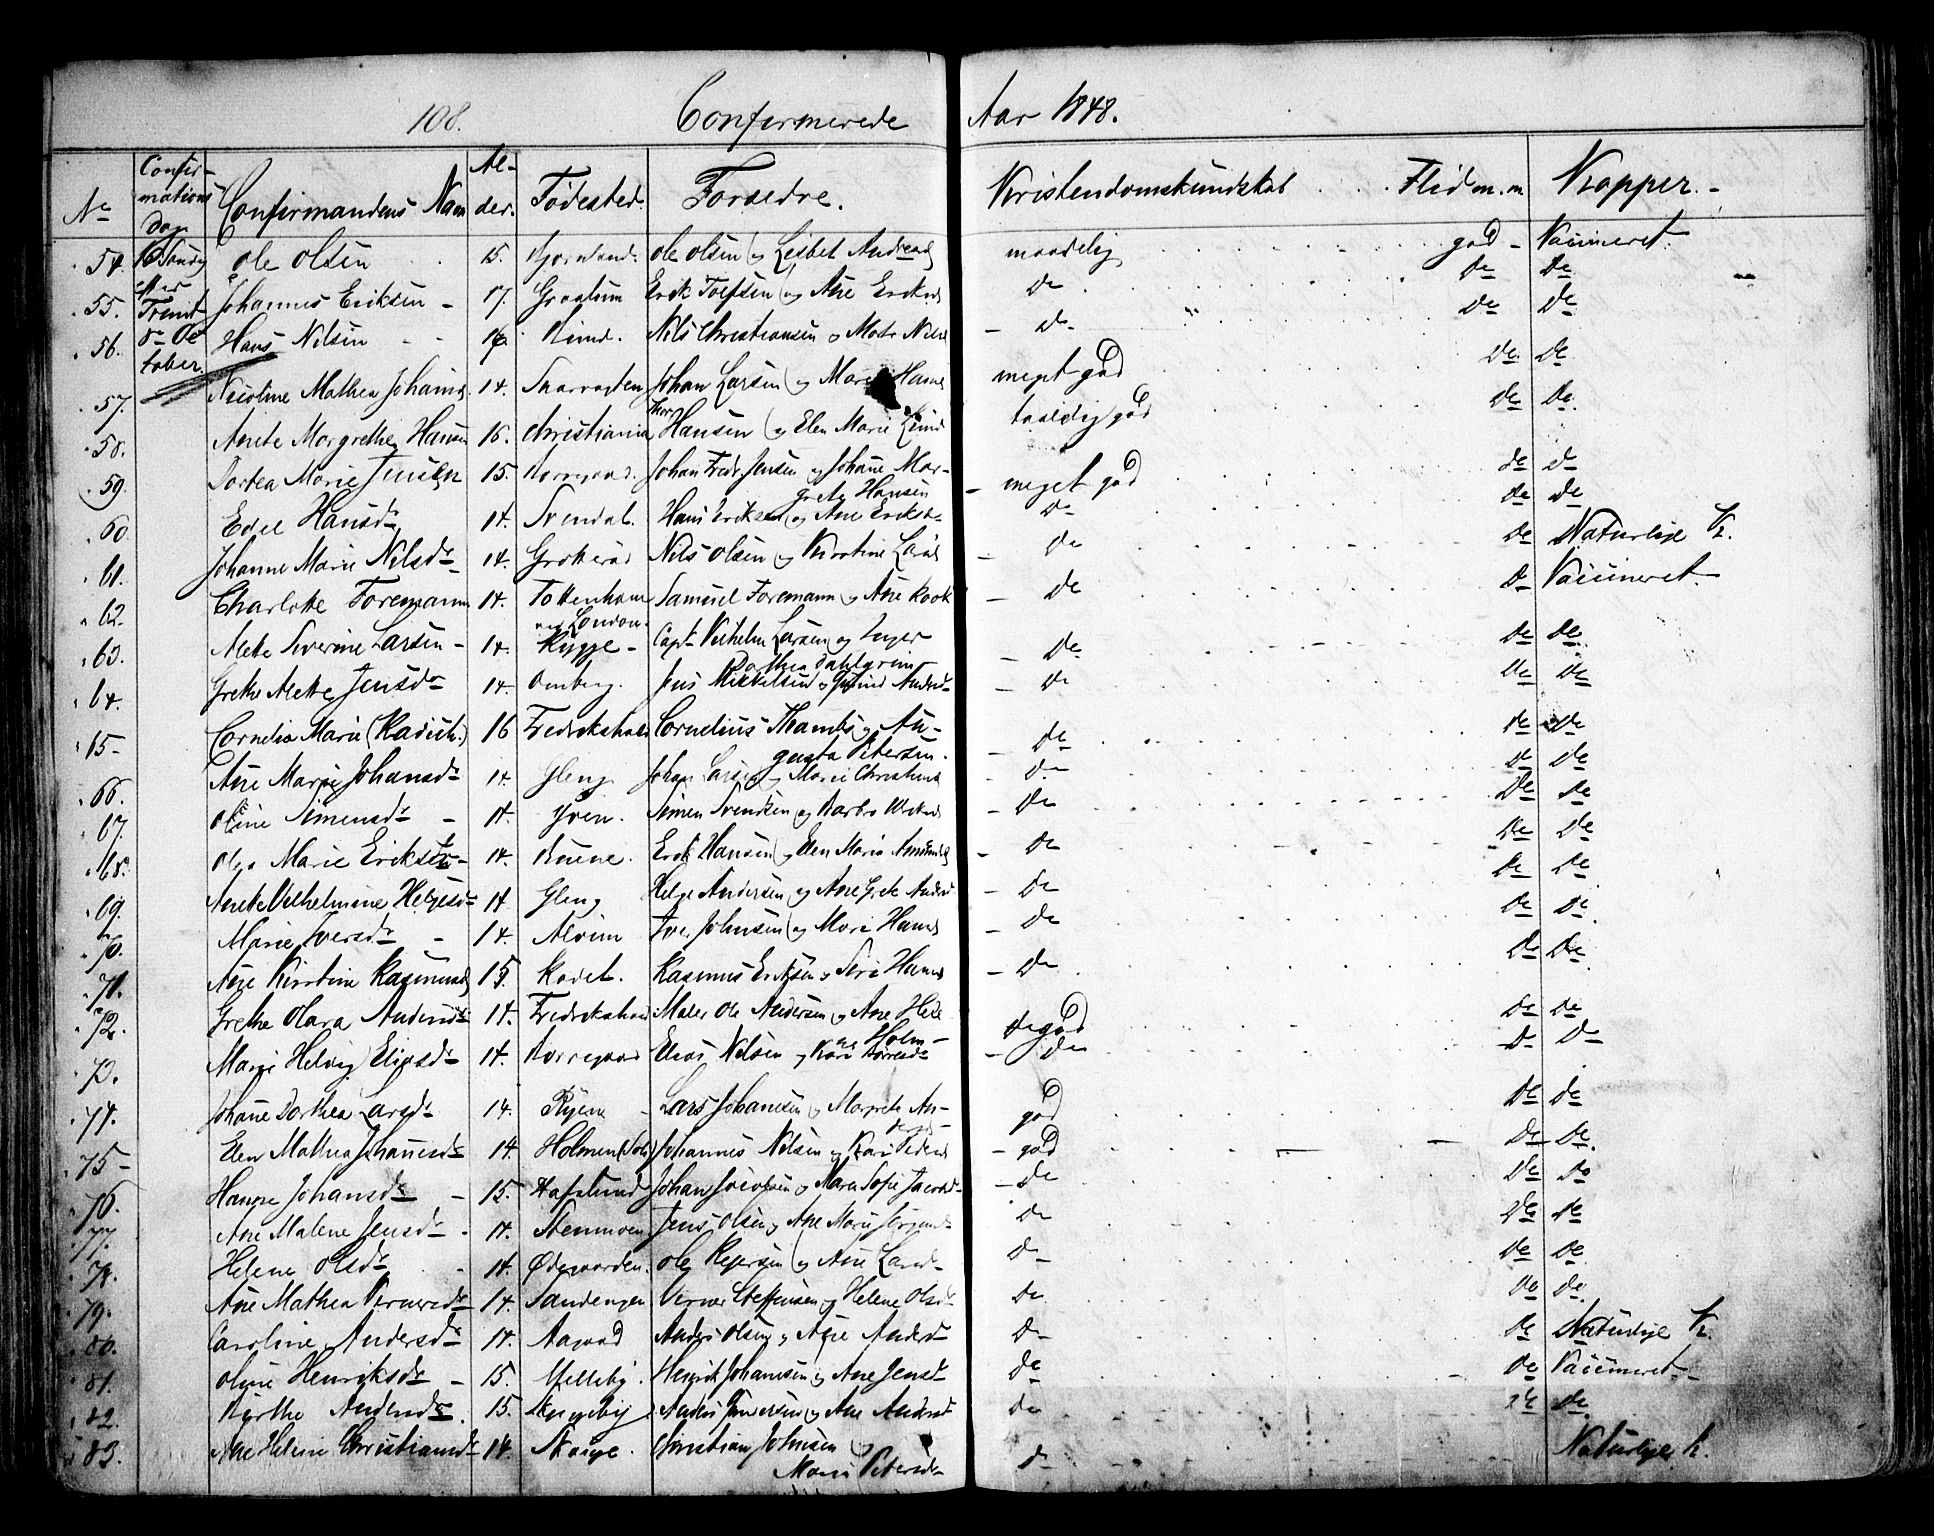 108. Confirmerede Aar 1848.
No Confirmations Dag Confirmandens Navn Alder. Fødested. Forældre. Kristendomskundskab Flid m. m Kopper.
54. 16 Søndg Ole Olsen 15. Ole Olsen og Lisbet Andreasd maadelig god Vaccineret.
55. efter Trinit Johannes Eriksen 17. Graalum Erik Toefsen og Ane Eriksd do do do
56. 8de October Hans Nilsen 16 Lund. Nils Christiansen og Mate Nilsd do do do
57. Nicoline Mathea Johansd. 14. Johan Larsen og Marie Hansd meget god do do
58. Anete Margrethe Hansen 16. Christiania Thor Hansen og Elen Marie Lund taalelig god do do.
59. Dortea Marie Jensen 15. Borregaard. Johan Fredr Jensen og Johane Mar-
grete Hansen meget god do do
60. Edel Hansdr 14. Svendal. Hans Eriksen og Ane Eriksd do do do
61. Johanne Marie Nilsdr 14. Nils Olsen og Kirstine Larsd do do Naturlige K.
62. Charlotte Foremann 14. Tottenham
ved London. Samuel Foremann og Ane Kook do do Vaccineret.
63. Mete Severine Larsen 14. Rygge Capt Vilhelm Larsen og Inger
Dorthea Dahlgrim do do do.
64. Grethe Mette Jensdr 14 Omberg. Jens Mikkelsen og Andersd do do do
65 Cornelia Marie (Radich.) 16 Fredrikshald Cornelius Thambs og Au-
gusta Petersen. do do do
66. Ane Marie Johansdr 14. Gleng Johan Larsen og Marie Christensd do do do
67. Oline Simensdr 14. Yven. Simen Svendsen og Barbro do do do
68. Olga Marie Eriksdr 14. Erik Hansen og Elen Marie Amundsd do do do
69. Anete Vilhelmine Helgesdr 14. Gleng Helge Andersen og Ane Grete Andersd do do do
70. Marie Iversdr 14. Alvim Iver Johnsen og Mari Hansd do do do.
71. Ane Kirstine Rasmusd 15. Kovet. Rasmus Eriksen og Siri Hansd do do do.
72. Grethe Olava Andersdr 14. Fredrikshald Maler Ole Andersen og Ane Hele
Holm god do do
73. Marie Helvig Eliasdr 14. Borregaard Elias Nilsen og Kari do do do
74. Johane Dorthea Larsdr 14. Ryene Lars Johanesen og Margrete An-
dersd god do do
75 Elen Mathea Johanesdr 14. Holmen Johannes Nilsen og Kari Pedersd god do do.
76. Hanne Johansdr 15. Hafslund Johan Jacobsen og Maren Sofie Jacobsd do do do
77. Ane Malene Jensdr 14. Stenmoen Jens Olsen og Ane Marie do do do
78. Helene Olsdr 14. Ødegaarden. Ole Rejersen og Ane Larsd do do do
79. Ane Mathea Vernersdr 14. Sandengen Verner Steffensen og Helene Olsdr do do do.
80. Caroline Andersdr 14. Aagaard Anders Olsen og Ane Andersd do do Naturlige K.
81. Oline Henriksdr 15. Henrik Johannesen og Ane Jensd do do Vaccineret.
82. Birthe Andersdr. 15. Anders og Ane Andersd do do do
83. Ane Helene Christiansdr 14. Skarge. Christian Johnsen
Mari Petersdr do Naturlige k.